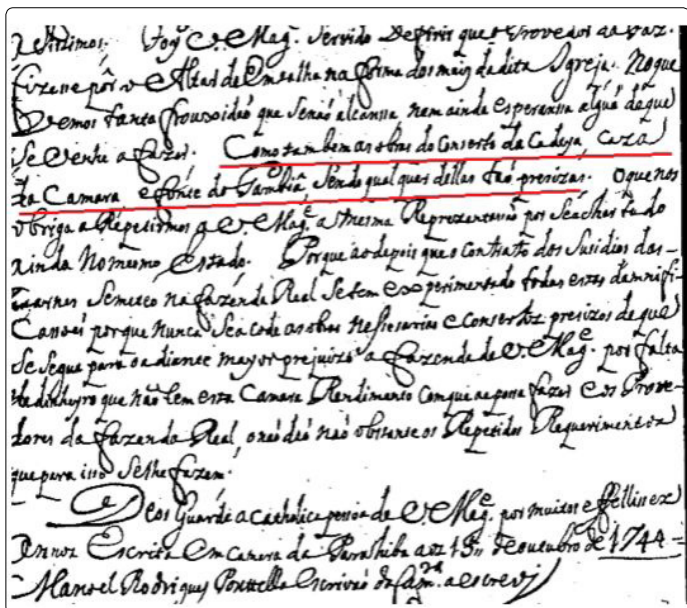 Foy V. Mag. Servido Defirir que o Provedor da Faz.
fizesse pôr o Altar de e na forma dos mais da dita Igreja. No que
Vemos tanta frouxidaó que senaó alcansa, nem ainda esperansa alguã de que
Se Venhe a fazer. Como tambem as obras do Conserto da Cadeya, caza
da Camara e fonte do Sendo qual quer dellas taó presizas. O que nos
obriga a Repetirmos a V. Mag.ᵉ a mesma Reprezentasaó por Se achar tudo
ainda No mesmo Estado. Porque ao depois que o Contrato dos Susidios das
Carnes Se meteo na fazenda Real Se tem experimentado todas estas damnifi-
Casoés porque nunca Se a Code as obras nessesarias e Consertoz presizos de que
Se Segue para o a diante mayor prejuizo a fazenda de V. Mag.ᵉ por falta
de dinheyro que naõ tem esta Camara Rendimento Com que as possa fazer e os Prove-
dores da fazenda Real, o naó daó naó obstante os Repetidos Requerimentos
que para isso Se lhe fazem.
Deos Guarde a Catholica pessoa de V. Mag.ᵉ por muitos e fellises
Annos Escrita em Camera da Parahiba aoz 13 de outubro de 1744 =
Manoel Rodrigues Escrivaó da Cam.ʳᵃ a escrevj